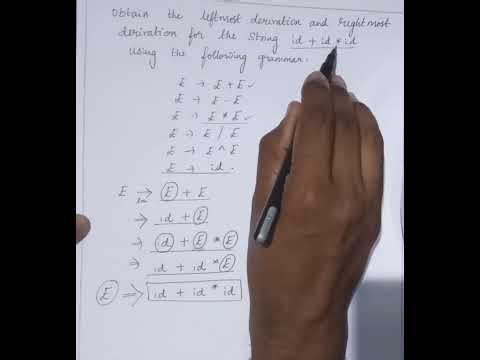 Obtain the leftmost derivation and rightmost
derivation for the string id + id * id
using the following grammar.
E → E + E ✓
E → E - E
E → E * E ✓
E → E / E
E → E ^ E
E → id.
E ⇒ E + E
lm
⇒ id + E
⇒ id + E * E
⇒ id + id * E
E ⇒ id + id * id